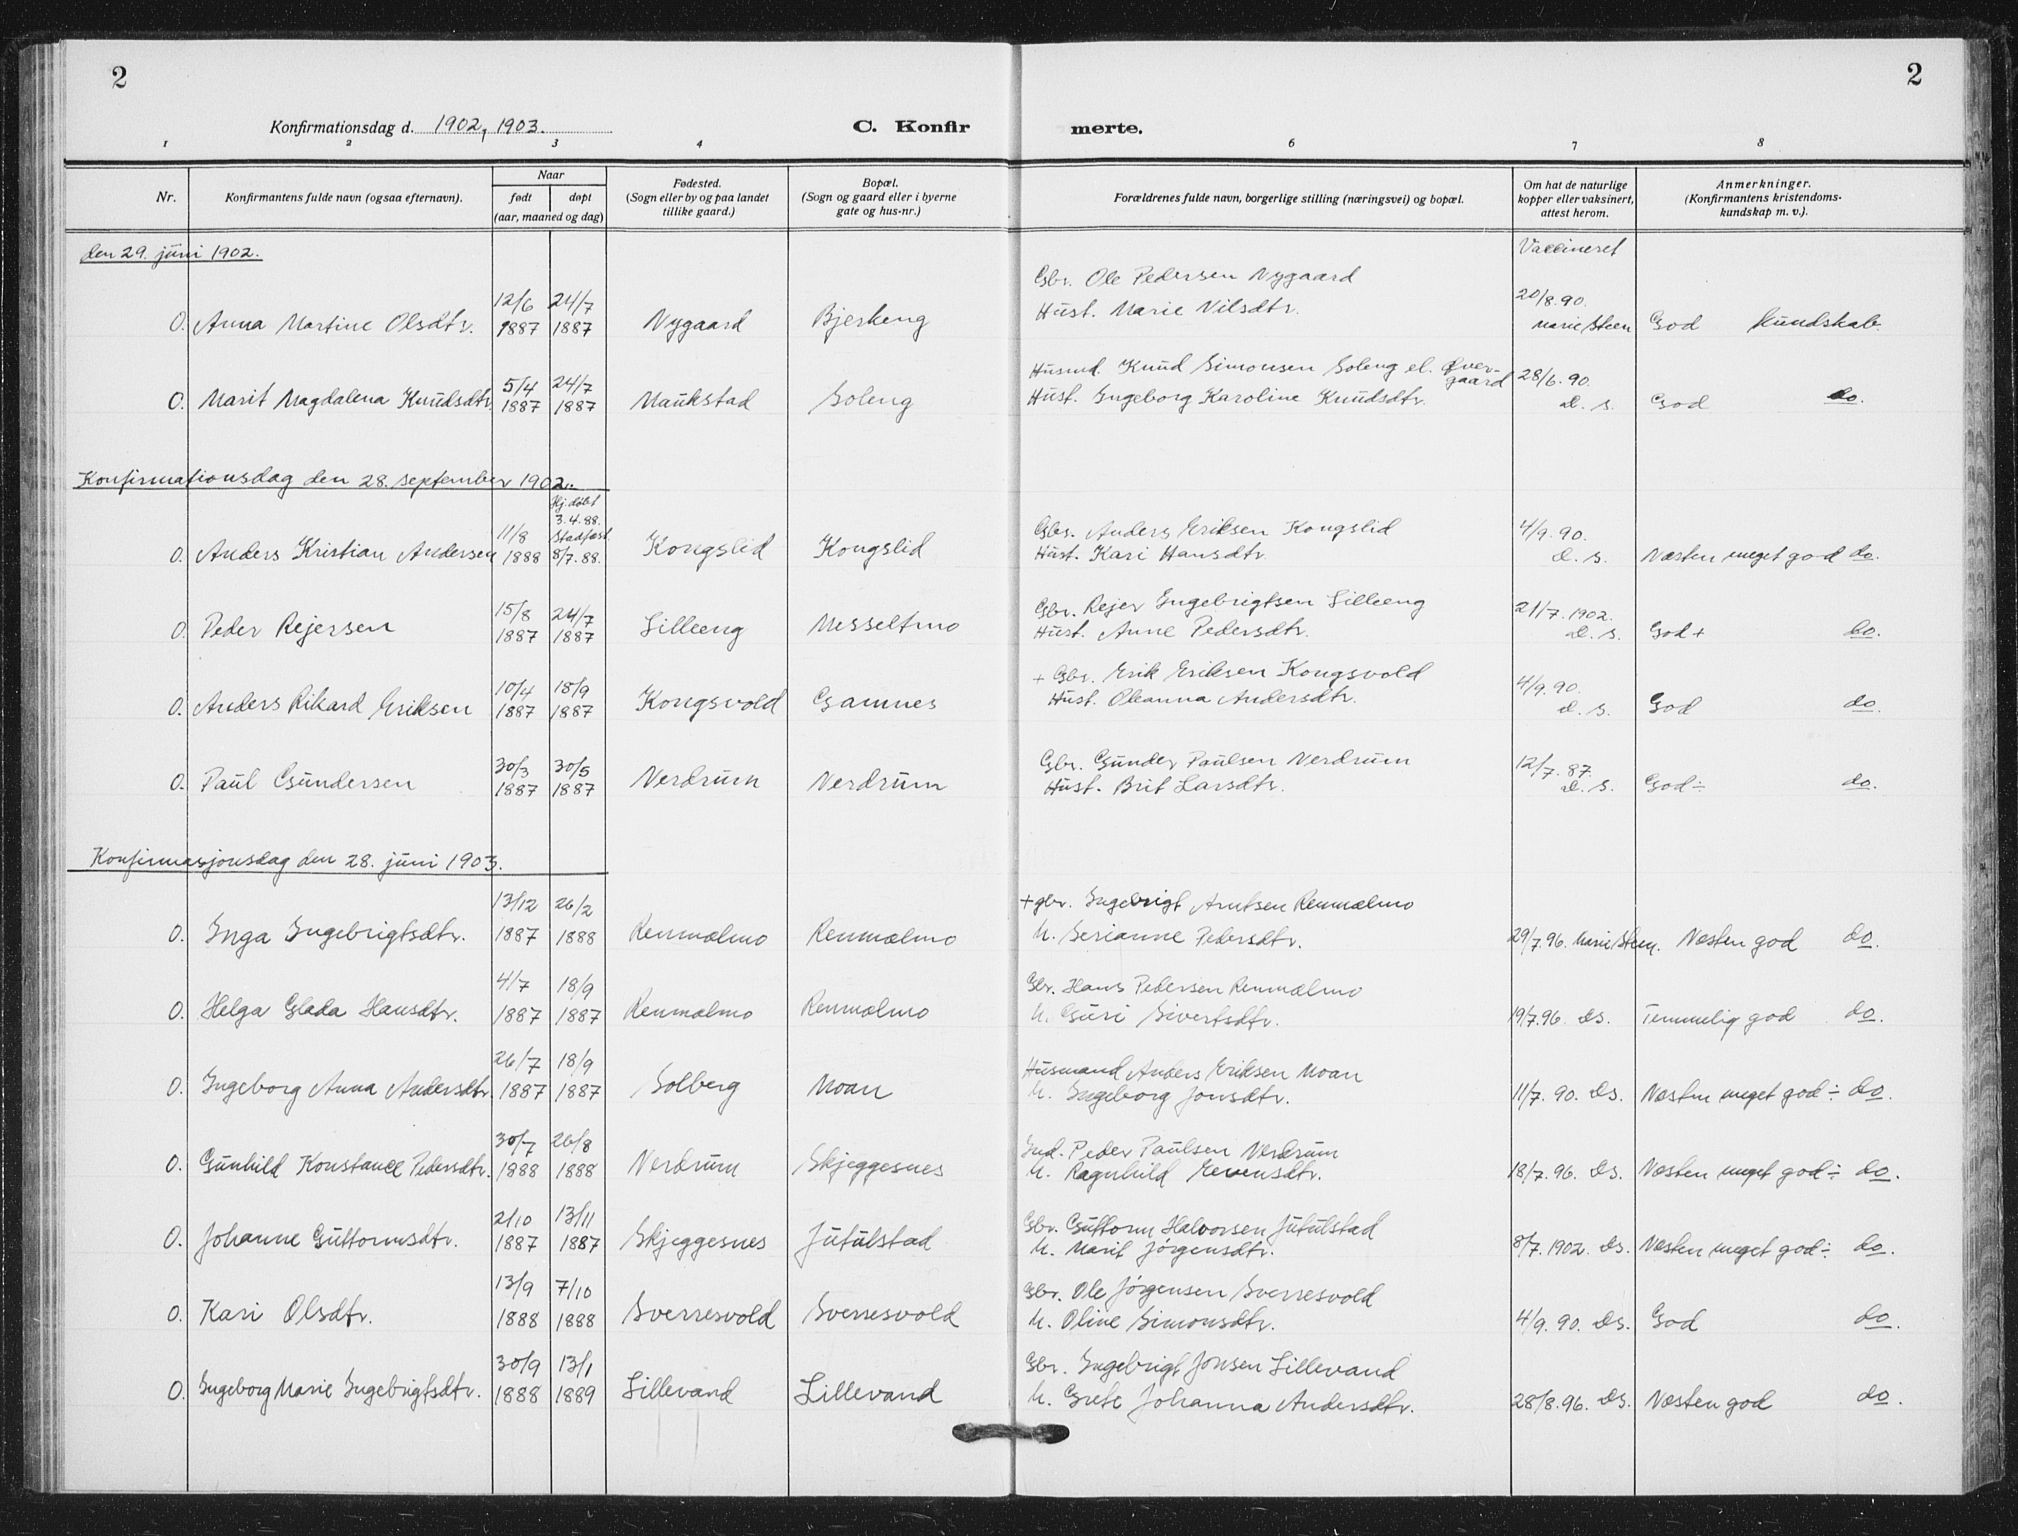 2
2
Konfirmationsdag d. 1902, 1903.
C. Konfir
merte.
1 2 3 4 6 7 8
Nr.
Konfirmantens fulde navn (ogsaa efternavn).
Naar
født døpt
(aar, maaned og dag)
Fødested.
(Sogn eller by og paa landet
tillike gaard.)
Bopæl.
(Sogn og gaard eller i byerne
gate og hus-nr.)
Forældrenes fulde navn, borgerlige stilling (næringsvei) og bopæl.
Om hat de naturlige
kopper eller vaksinert,
attest herom.
Anmerkninger.
(Konfirmantens kristendoms-
kundskap m. v.).
den 29. juni 1902.
Vaccineret
12/6 24/7 Gbr. Ole Pedersen Nygaard 20/8.90.
0. Anna Martine Olsdtr. 1887 1887 Nygaard Bjerkeng Hust. Marie Nilsdtr. Marie Steen God kundskab.
5/4 24/7 Husmd. Knud Simonsen Soleng el. Øver-
gaard 28/6.90.
0. Marit Magdalena Knudsdtr. 1887 1887 Maukstad Soleng Hust. Ingeborg Karoline Knudsdtr. d. s. God do.
Konfirmationsdag den 28. september 1902.
Hj.døbt
3.4.88.
11/8 Stadfæst. Gbr. Anders Eriksen Kongslid 4/9.90.
0. Anders Kristian Andersen 1888 8/7.88. Kongslid Kongslid Hust. Kari Hansdtr. d. s. Næsten meget god do.
15/8 24/7 Gbr. Rejer Ingebrigtsen Lilleeng 21/7.1902.
0. Peder Rejersen 1887 1887 Lilleeng Messeltmo Hust. Anne Pedersdtr. d. s. God + do.
10/4 18/9 + Gbr. Erik Eriksen Kongsvold 4/9.90.
0. Anders Rikard Eriksen 1887 1887 Kongsvold Gamnes Hust. Oleanna Andersdtr. d. s. God do.
30/3 30/5 Gbr. Gunder Paulsen Nerdrum 12/7.87.
0. Paul Gundersen 1887 1887 Nerdrum Nerdrum Hust. Brit Larsdtr. d. s. God ÷ do.
Konfirmasjonsdag den 28. juni 1903.
13/12 26/2 + gbr. Ingebrigt Arntsen Renmælmo
0. Inga Ingebrigtsdtr. 1887 1888 Renmælmo Renmælmo h. Serianne Pedersdtr. 29/7.96. Marie Steen. Næsten god do.
4/7 18/9 Gbr. Hans Pedersen Renmælmo
0. Helga Glada Hansdtr. 1887 1887 Renmælmo Renmælmo h. Guri Sivertsdtr. 19/7.96. ds. Temmelig god do.
26/7 18/9 Husmand Anders Eriksen Moan
0. Ingeborg Anna Andersdtr. 1887 1887 Solberg Moan h. Ingeborg Jonsdtr. 11/7.90. ds. Næsten meget god ÷ do.
30/7 26/8 Ind. Peder Paulsen Nerdrum
0. Gunhild Konstance Pedersdtr. 1888 1888 Nerdrum Skjeggesnes h. Ragnhild Evensdtr. 18/7.96. ds. Næsten meget god ÷ do.
2/10 13/11 Gbr. Guttorm Halvorsen Jutulstad
0. Johanne Guttormsdtr. 1887 1887 Skjeggesnes Jutulstad h. Marit Jørgensdtr. 8/7.1902. ds. Næsten meget god ÷ do.
13/9 7/10 Gbr. Ole Jørgensen Sverresvold
0. Kari Olsdtr. 1888 1888 Sverresvold Sverresvold h. Oline Simonsdtr. 4/9.90. ds. God do.
30/9 13/1 Gbr. Ingebrigt Jonsen Lillevand
0. Ingeborg Marie Ingebrigtsdtr. 1888 1889 Lillevand Lillevand h. Grete Johanna Andersdtr. 28/8.96. ds. Næsten god do.